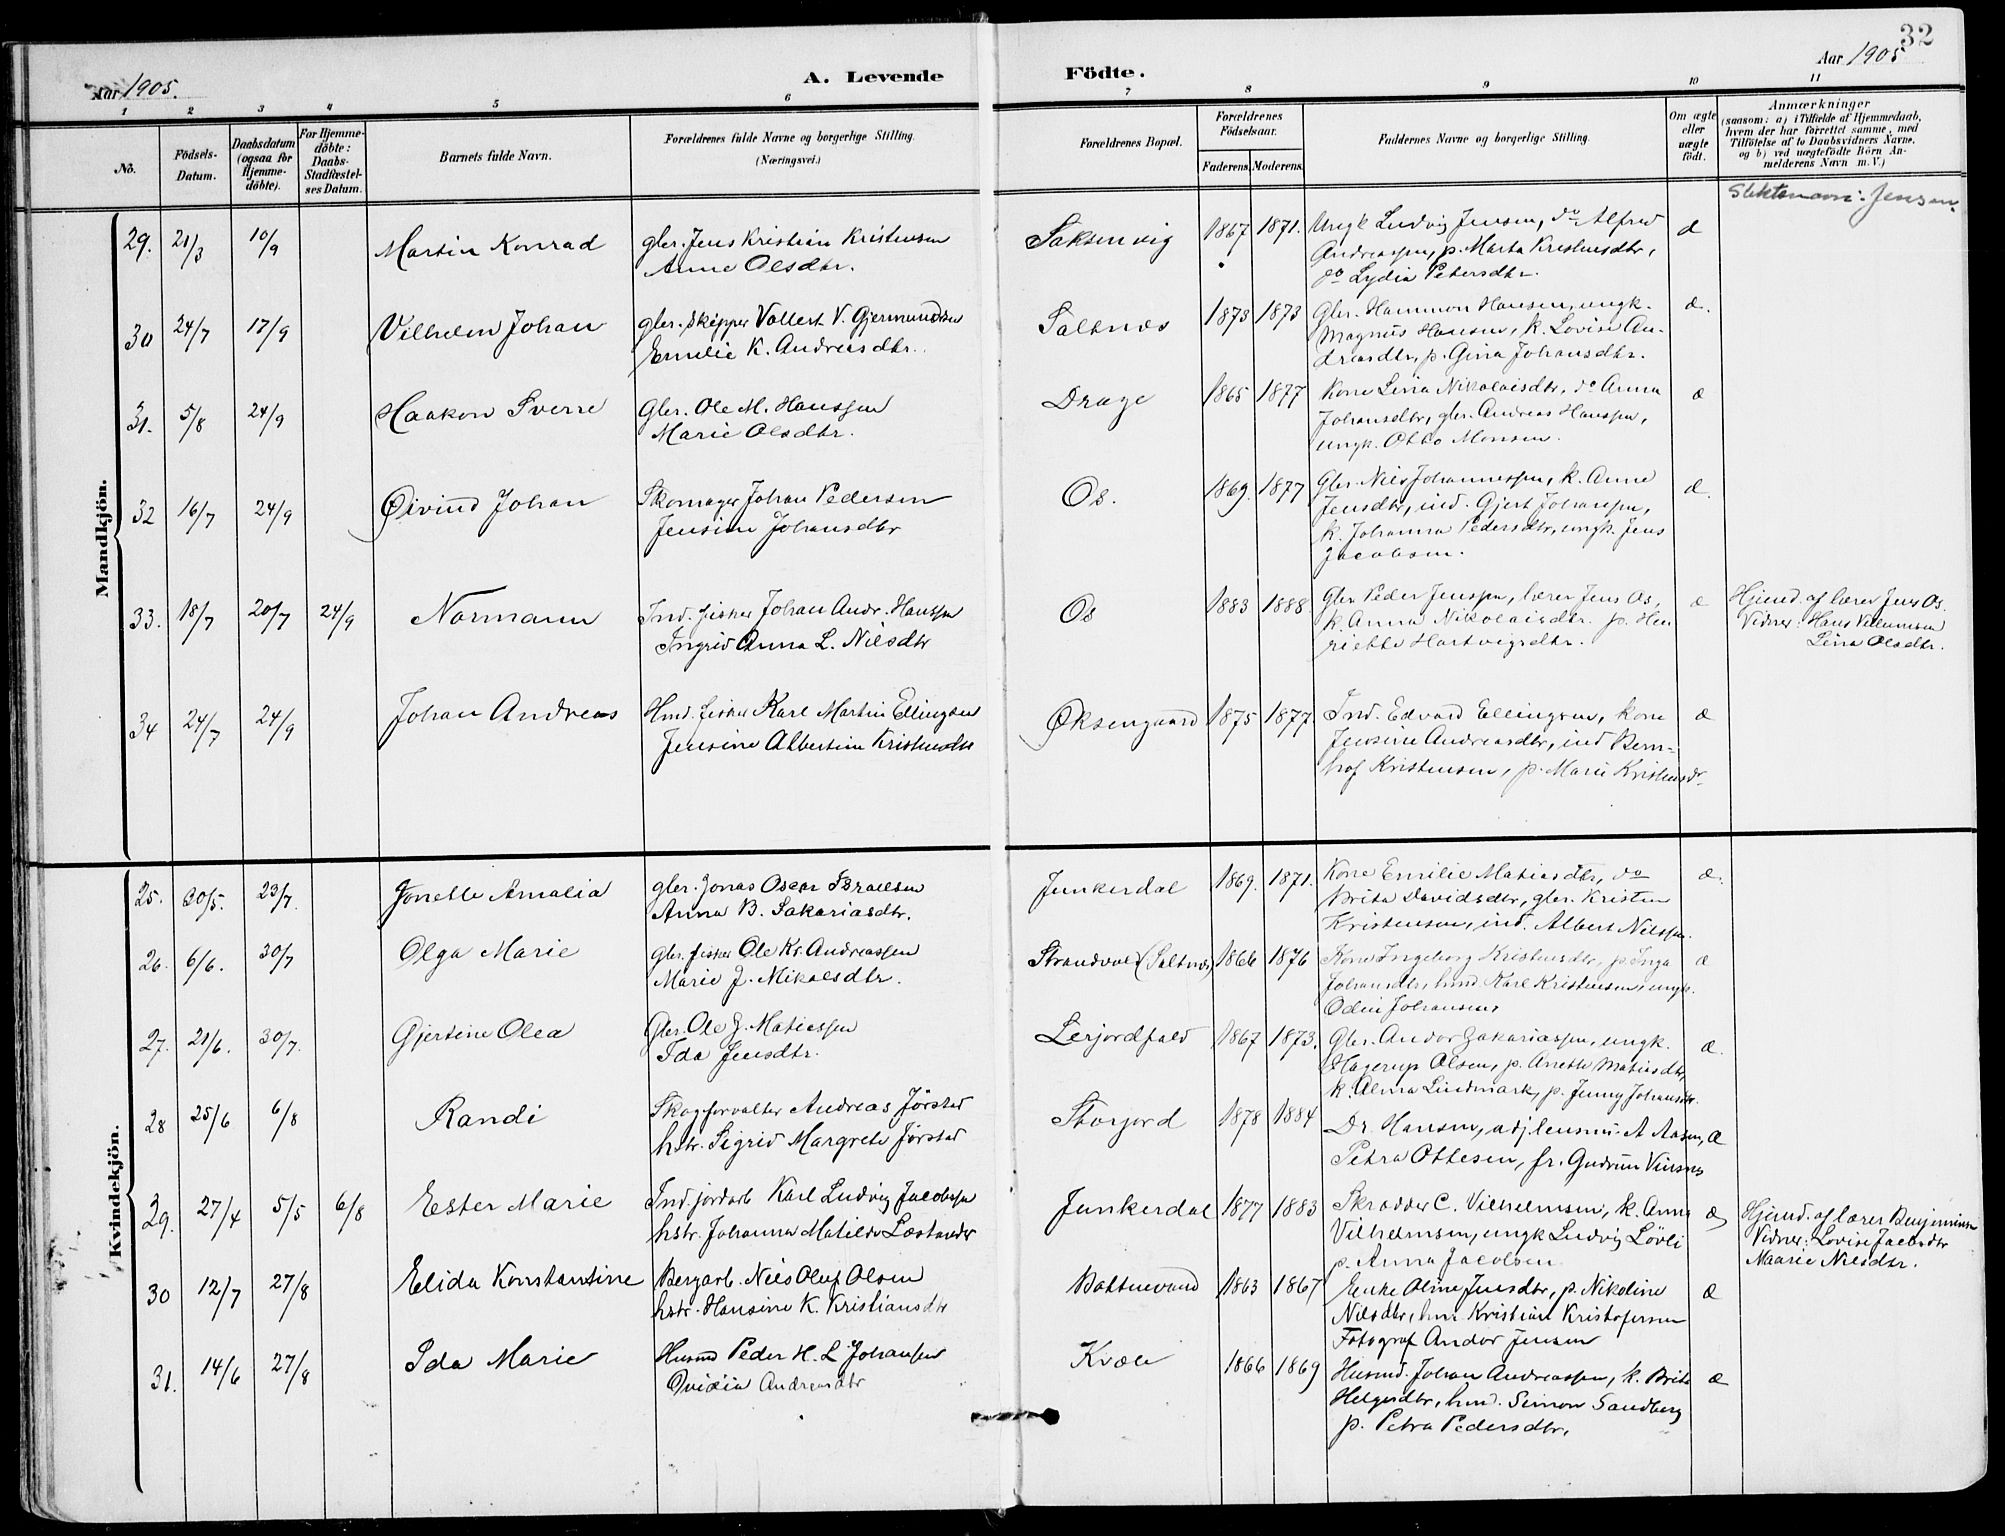 32
Aar 1905.
A. Levende
Födte.
Aar 1905
1 2 3 4 5 6 7 8 9 10 11
No.
Födsels-Datum.
Daabsdatum (ogsaa for Hjemme-döbte).
For Hjemme-döbte: Daabs-Stadfæstelses Datum.
Barnets fulde Navn.
Forældrenes fulde Navne og borgerlige Stilling.
(Næringsvei.)
Forældrenes Bopæl.
Forældrenes Födselsaar.
Faderens. Moderens.
Faddernes Navne og borgerlige Stilling.
Om ægte eller uægte födt.
Anmærkninger
(saasom: a) i Tilfælde af Hjemmedaab,
hvem der har forrettet samme, med
Tilföielse af to Daabsvidners Navne,
og b) ved uægtefödte Börn An-
melderens Navn m. V.)
Mandkjön.
29. 21/3 10/9 Martin Konrad
gbr. Jens Kristian Kristensen
Anne Olsdtr.
Saksenvig 1867 1871.
Ungk Ludvig Jensen, do Alfred
Andreassen, p. Marta Kristensdtr,
do Lydia Petersdtr.
æ
Slektsnavn: Jensen.
30 24/7 17/9 Vilhelm Johan
gbr. skipper Vollert V. Gjermundsen
Emilie K. Andreasdtr.
Saltnes 1873 1873
Gbr. Hammon Hansen, ungk.
Magnus Hansen, k. Lovise An-
dreasdtr, p. Gina Johansdtr.
æ.
31. 5/8 24/9 Haakon Sverre
Gbr. Ole M. Hanssen
Marie Olsdtr.
Drage 1865 1877
Kone Lina Nikolaisdtr, do Anna
Johansdtr, gbr. Andreas Hanssen,
ungk. Otto Monsen.
æ
32 16/7 24/9 Øivind Johan
Skomager Johan Pedersen
Jensine Johansdtr
Os. 1869. 1877
Gbr. Nils Johannessen, k. Anne
Jensdtr, ind. Gjert Johansen,
k. Johanna Pedersdtr, ungk. Jens
Jacobsen.
æ.
33. 18/7 20/7 24/9 Normann
Ind. fisker Johan Andr. Hanssen
Ingrid Anna L. Nilsdtr
Os 1883 1888
Gbr Peder Jenssen, lærer Jens Os,
k. Anna Nikolaisdtr. p. Hen
riette Hartvigsdtr.
æ
Hjemd. af lærer Jens Os.
Vidner: Hans Villumsen
Lina Olsdtr.
34 24/7 24/9 Johan Andreas
Hmd. fisker Karl Martin Ellingsen
Jensine Albertine Kristensdtr
Øksengaard 1875 1877
Ind. Edvard Ellingsen, kone
Jensine Andreasdtr, ind Bern-
hof Kristensen, p. Marie Kristensdr
æ
Kvindekjön.
25. 30/5. 23/7. Jonette Amalia
gbr. Jonas Oscar Israelsen
Anna B. Sakariasdtr.
Junkerdal 1869. 1871.
Kone Emilie Matiasdtr, do
Brita Davidsdtr, gbr. Kristen
Kristensen, ind. Albert Nilssen.
æ.
26. 6/6. 30/7 Olga Marie
gbr. fisker Ole Kr. Andreassen
Marie J. Mikalsdtr.
(Saltnes) 1866 1876
Kone Ingeborg Kristensdtr, p. Inga
Johansdtr, hmd. Karl Kristensen, ungk.
Odin Johansen,
æ
27. 21/6. 30/7. Gjertine Olea
Gbr. Ole J. Matiassen
Ida Jensdtr.
Lerjordfald 1867 1873.
Gbr. Andor Zakariassen, ungk.
Hagerup Olsen, p. Anette Matiasdtr,
k. Alma Lindmark, p. Jenny Johansdtr.
æ.
28 25/6 6/8 Randi
Skogforvalter Andreas Jørstad
hstr. Sigrid Margrete Jørstad
Storjord 1878 1884
Dr. Hansen, A Aasen,
Petra Ottesen, fr. Gudrun
æ
29. 27/4 5/5 6/8 Ester Marie
Ind. jordarb Karl Ludvig Jacobssen
hstr. Johanna Matilde Læstander
Junkerdal 1877 1883
Skrædder C. Vilhelmsen, k. Anna
Vilhelmsen, ungk Ludvig Løvli
p. Anna Jacobsen.
æ
Hjemd. af lærer Benjaminsen
Vidner: Lovise Jacobsdtr
Maarie Nilsdtr.
30 12/7 27/8 Elida Konstantine
Bergarb. Nils Oluf Olsen
hstr. Hansine K. Kristiansdtr
Bottnevand 1863 1867
Enke Oline Jensdtr, p. Nikoline
Nilsdtr, hm. Kristian Kristofersen
Fotograf Andor Jensen
æ
31. 14/6 27/8 Ida Marie
Husmd Peder H. L Johansen
Ovidia Andreasdtr
Kvæle 1866 1869
Husmd. Johan Andreassen, k. Brita
Helgesdtr, hmd. Simon Sandberg
p. Petra Pedersdtr.
æ